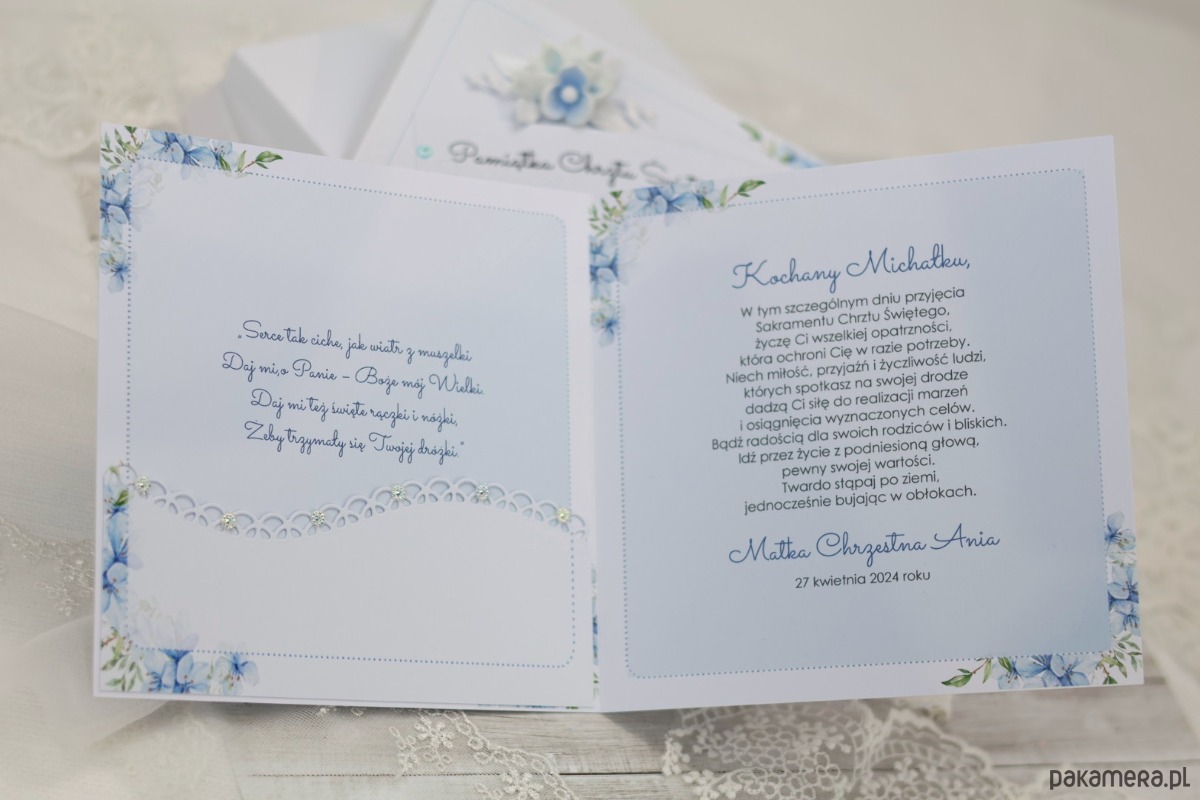 Pamiątka Chrztu
„Serce tak ciche, jak wiatr z muszelki
Daj mi,o Panie – Boże mój Wielki.
Daj mi też święte rączki i nóżki,
Żeby trzymały się Twojej dróżki."
Kochany Michałku,
W tym szczególnym dniu przyjęcia
Sakramentu Chrztu Świętego,
życzę Ci wszelkiej opatrzności,
która ochroni Cię w razie potrzeby.
Niech miłość, przyjaźń i życzliwość ludzi,
których spotkasz na swojej drodze
dadzą Ci siłę do realizacji marzeń
i osiągnięcia wyznaczonych celów.
Bądź radością dla swoich rodziców i bliskich.
Idź przez życie z podniesioną głową,
pewny swojej wartości.
Twardo stąpaj po ziemi,
jednocześnie bujając w obłokach.
Matka Chrzestna Ania
27 kwietnia 2024 roku
pakamera.pl